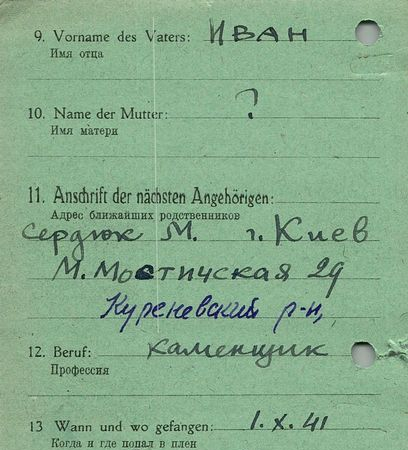 9. Vorname des Vaters: ИВАН
Имя отца
10. Name der Mutter: ?
Имя матери
11. Anschrift der nächsten Angehörigen:
Адрес ближайших родственников
Сердюк М. г. Киев
М. Мостичская 29
Куреневский р-н,
12. Beruf: каменщик
Профессия
13 Wann und wo gefangen: 1.X.41
Когда и где попал в плен